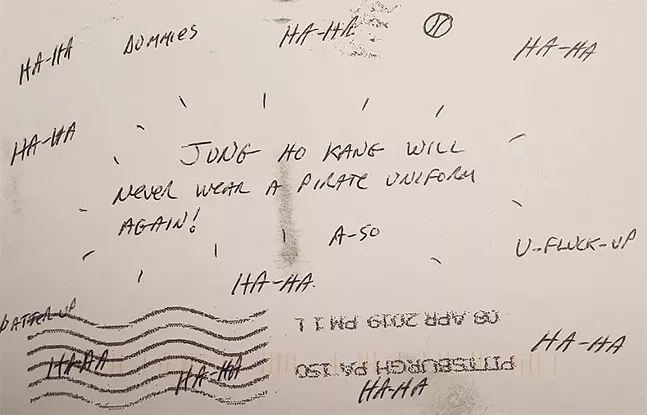 HA-HA DUMMIES HA-HA HA-HA
HA-HA
JUNG HO KANG WILL
NEVER WEAR A PIRATE UNIFORM
AGAIN!
A-SO
U-FLUCK-UP
HA-HA.
BATTER-UP
08 APR 2019 PM 1 L
PITTSBURGH PA 150
HA-HA
HA-HA
HA-HA
HA-HA